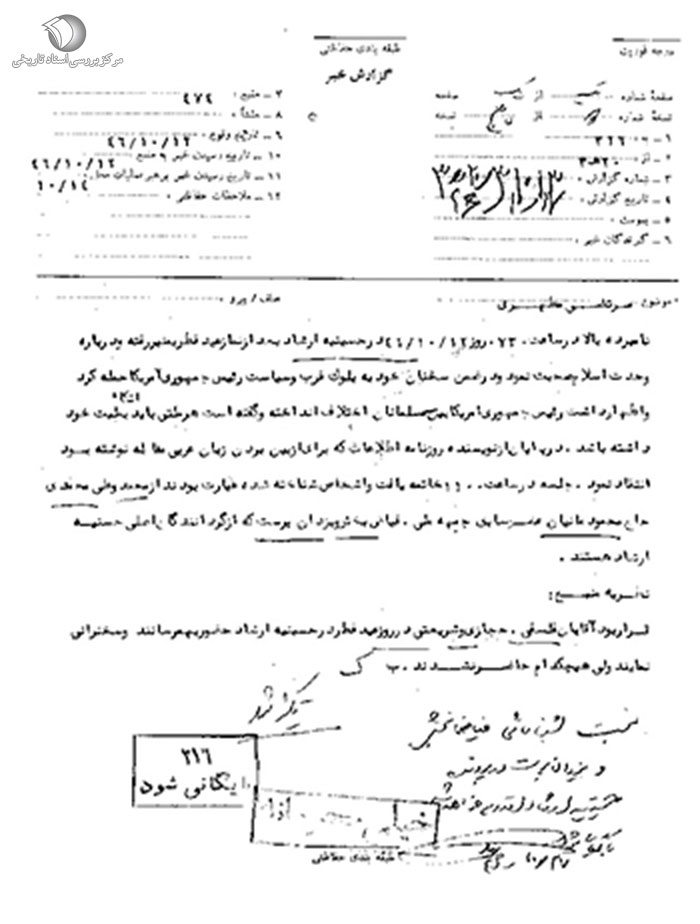 مرکز بررسی اسناد تاریخی
درجه فوریت
طبقه بندی حفاظتی
گزارش خبر
صفحهٔ شماره یک از یک صفحه
نسخهٔ شماره از نسخه
۱ – به ۳۱۶
۲ – از ۲۰ه۳
۳ – شماره گزارش
۴ – تاریخ گزارش
۵ – پیوست
۶ – گیرندگان خبر
۷ – منبع ۴۷۴
۸ – منشأ
۹ – تاریخ وقوع ۴۶/۱۰/۱۲
۱۰ – تاریخ رسیدن خبر به منبع ۴۶/۱۰/۱۲
۱۱ – تاریخ رسیدن خبر به رهبر عملیات محل ۱۰/۱۴
۱۲ – ملاحظات حفاظتی
موضوع مرتضی مطهری
عطف / پیرو
نامبرده بالا در ساعت ۰۷۳۰ روز ۴۶/۱۰/۱۲ در حسینیه ارشاد بعد از نماز عید فطر بمنبر رفته و درباره
وحدت اسلام صحبت نمود و در ضمن سخنان خود به بلوک غرب و سیاست رئیس جمهوری آمریکا حمله کرد
و اظهار داشت رئیس جمهوری آمریکا بین مسلمانان اختلاف انداخته و گفته است هر ملتی باید بملیت خود
اتکاء
داشته باشد . در پایان از نویسنده روزنامه اطلاعات که برای از بین بردن زبان عربی مقاله نوشته بود
انتقاد نمود . جلسه در ساعت خاتمه یافت و اشخاص شناخته شده عبارت بودند از محمد ولی محمدی
حاج محمود مانیان عضو سابق جبهه ملی . فیاض بخش و یزدان پرست که از گردانندگان اصلی حسینیه
ارشاد هستند .
نظریه منبع :
قرار بود آقایان فلسفی . حجازی و شریعتی در روز عید فطر در حسینیه ارشاد حضور بهم رسانند و سخنرانی
نمایند ولی هیچکدام حاضر نشدند . ب ک
تکثیر شد
نسبت شناسائی فیاض بخش
و یزدان پرست
۳۱۶
بایگانی شود
طبقه بندی حفاظتی